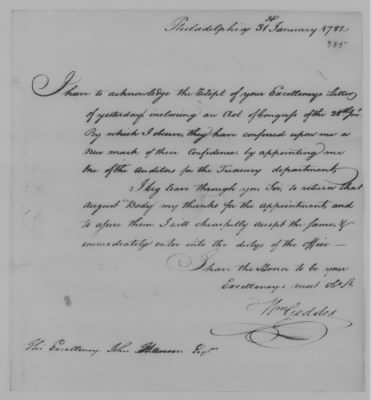 Philadelphia 31st January 1782
335
I have to acknowledge the Receipt of your Excellencys Letter
of yesterday inclosing an Act of Congress of the 28th Jan'y
By which I observe, they have conferred upon me a
New mark of their Confidence by appointing me
One of the Auditors for the Treasury department,
I beg leave through you Sir, to return that
August Body my thanks for the appointment, and
to assure them I will chearfully accept the same, &
immediately enter into the dutys of the Office —
I have the Honor to be your
Excellencys most Obt St
Wm Geddes
His Excellency John Hanson Esqr